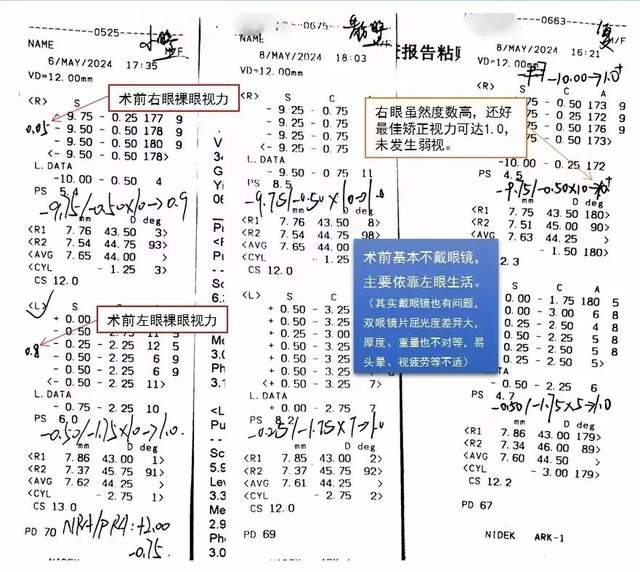 -----0525-----
NAME
M/F
6/MAY/2024 17:35
VD=12.00mm
<R> S
术前右眼裸眼视力
- 9.75 - 0.25 177 9
0.05
- 9.50 - 0.50 178 9
- 9.50 - 0.50 180 9
<- 9.50 - 0.50 178>
L.DATA
-10.00 - 0.50 4
PS 5.
-9.75/-0.50×10→0.9
mm D deg
<R1 7.76 43.50 3>
<R2 7.54 44.75 93>
<AVG 7.65 44.00 >
<CYL - 1.25 3>
CS 12.0
<L> S C A
+ 0.00
术前左眼裸眼视力
- 0.50
- 0.25 - 2.25 12 5
0.8
- 0.25 - 2.25 6 9
- 0.50 - 2.25 6 9
<- 0.50 - 2.25 11>
L.DATA
- 0.75 - 2.25 10
PS 6.0
-0.50/-1.75×10→1.0.
mm D deg
<R1 7.86 43.00 1>
<R2 7.37 45.75 91>
<AVG 7.62 44.25 >
<CYL - 2.75 1>
CS 13.0
PD 70
NRA/PRA:+2.00
-0.75.
NIDEK
-----0675-----
NAME
M/F
8/MAY/2024 18:03
VD=12.00mm
<R> S C A
- 9.25 - 0.75 9
- 9.50 - 0.75 11
- 9.50 - 0.75
- 9.50 - 0.75 11
<- 9.50 - 0.75 11>
L.DATA
- 9.75 - 0.50 11
PS 8.5
-9.75/-0.50×10→1.0
mm D deg
<R1 7.76 43.50 8>
<R2 7.54 44.75 98>
<AVG 7.65 44.25
<CYL - 1.25
CS 12.0
<L> S C
+ 0.50 - 3.25
+ 0.50 - 3.25
+ 0.50 - 3.25
+ 0.50 - 3.25
+ 0.50 - 3.25
<+ 0.50 - 3.25 7>
L.DATA
+ 0.25 - 2.75 7
PS 8.2
-0.25/-1.75×7→1.0
mm D deg
<R1 7.85 43.00 2>
<R2 7.37 45.75 92>
<AVG 7.61 44.25 >
<CYL - 2.75 2>
CS 12.0
PD 69
术前基本不戴眼镜，
主要依靠左眼生活。
（其实戴眼镜也有问题，
双眼镜片屈光度差异大，
厚度、重量也不对等，易
头晕、视疲劳等不适）
报告粘贴
-----0663-----
NAME
M/F
8/MAY/2024 16:21
VD=12.00mm
-10.00→1.0+
- 0.50 173 9
右眼虽然度数高，还好
最佳矫正视力可达1.0，
未发生弱视。
- 0.50 174 9
- 0.50 176 9
- 0.25 172
-10.00 - 0.25 172
PS 4.5
-9.75/-0.50×10→1.0+
mm D deg
<R1 7.75 43.50 180>
<R2 7.51 45.00 90>
<AVG 7.63 44.25 >
- 1.50 180>
2.3
S C A
0.00 - 1.75 180 5
0.00 - 3.00 6 8
0.50 - 2.25 4 8
0.50 - 2.25 5 8
0.50 - 2.25 5 8
- 2.25 6
PS 4.7
-0.50/-1.75×5→1.0
mm D deg
<R1 7.86 43.00 179>
<R2 7.34 46.00 89>
<AVG 7.60 44.50 >
<CYL - 3.00 179>
CS 12.2
PD 67
NIDEK ARK-1